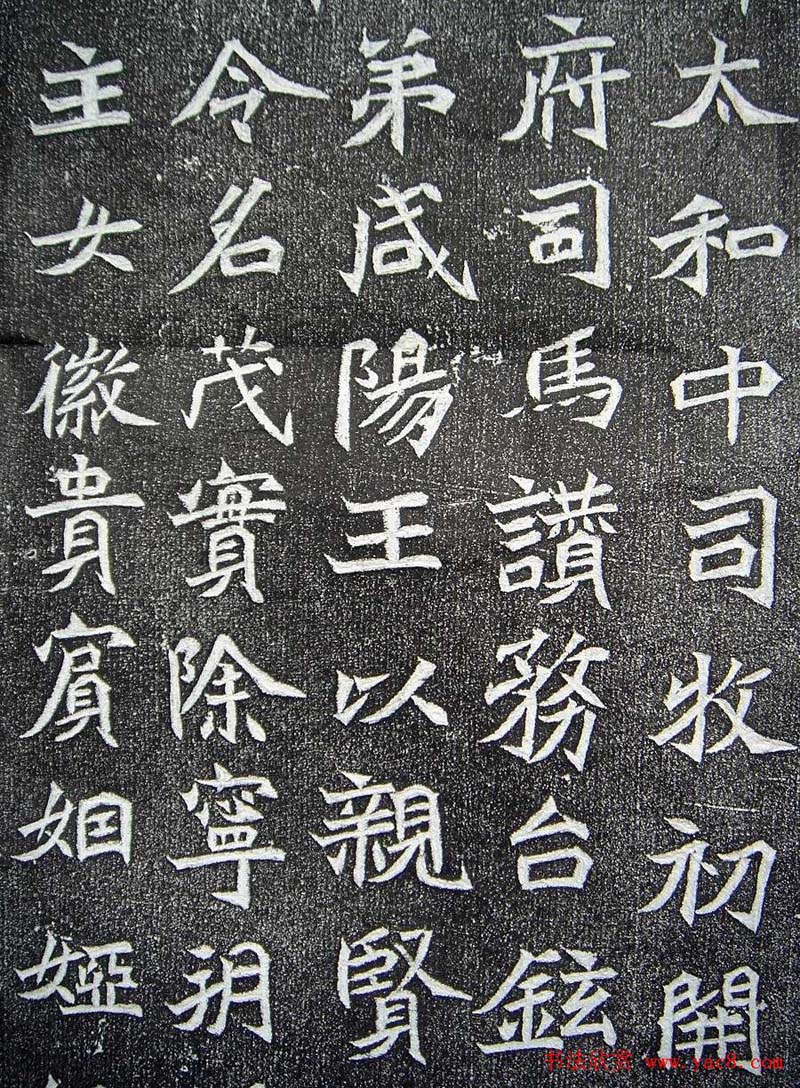 太和中司牧初開
府司馬讃務台鉉
弟咸陽王以親賢
令名茂實除寧玥
主女徽貴賓姻婭
书法欣赏 www.yac8.com